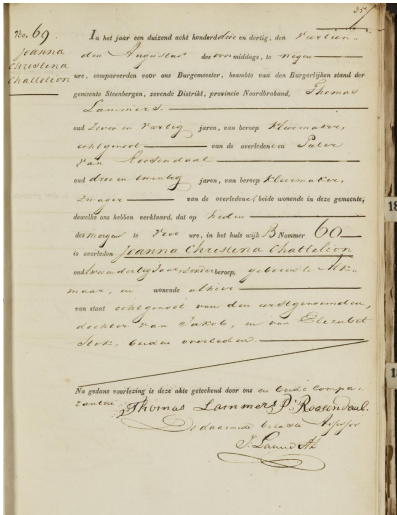 35
No. 69
Joanna
Christina
Chatteleon
In het jaar een duizend acht honderd drie en dertig, den veertien
den Augustus des voormiddags, te negen
ure, compareerden voor ons Burgemeester, beambte van den Burgerlijken stand der
gemeente Steenbergen, zevende Distrikt, provincie Noordbraband, Thomas
Lammers
oud zeven en veertig jaren, van beroep kleermaker,
echtgenoot van de overledene en Pieter
van Roosendaal
oud drie en twintig jaren, van beroep kleermaker,
zwager van de overledene / beide wonende in deze gemeente,
dewelke ons hebben verklaard, dat op heden
des morgens te vier ure, in het huis wijk B Nummer 60
is overleden Joanna Christina Chatteleon
oud dertig Jaar, zonder beroep, geboren te Alk
maar, en wonende alhier
van staat echtgenoot van den eerstgenoemden,
dochter van Jakob, en van Elizabet
Stok, beiden overleden.
Na gedane voorlezing is deze akte geteekend door ons en beide compa-
ranten
Thomas Lammers P. v. Roosendaal
De daartoe Assessor
18
1